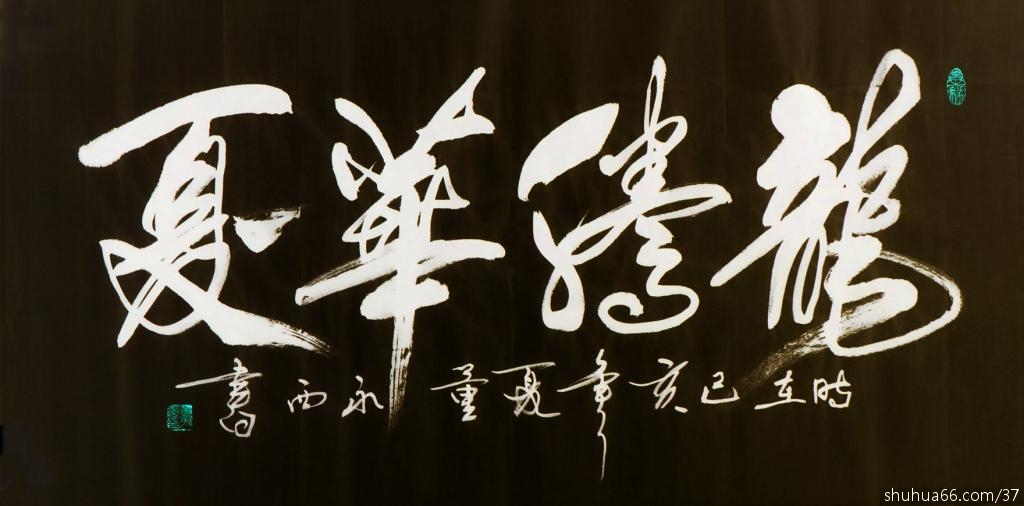 龍騰華夏
時在己亥年夏董永西書
shuhua66.com/37